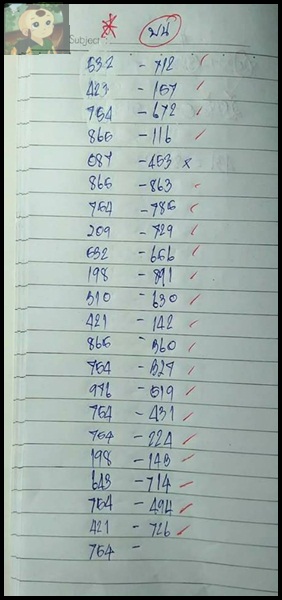 Subject
บน
532 - 712
423 - 157
754 - 672
865 - 116
087 - 453 x
865 - 863
754 - 785
209 - 729
532 - 656
198 - 891
310 - 630
421 - 142
865 - 360
754 - 327
976 - 519
754 - 431
754 - 224
198 - 148
643 - 714
754 - 494
421 - 726
754 -